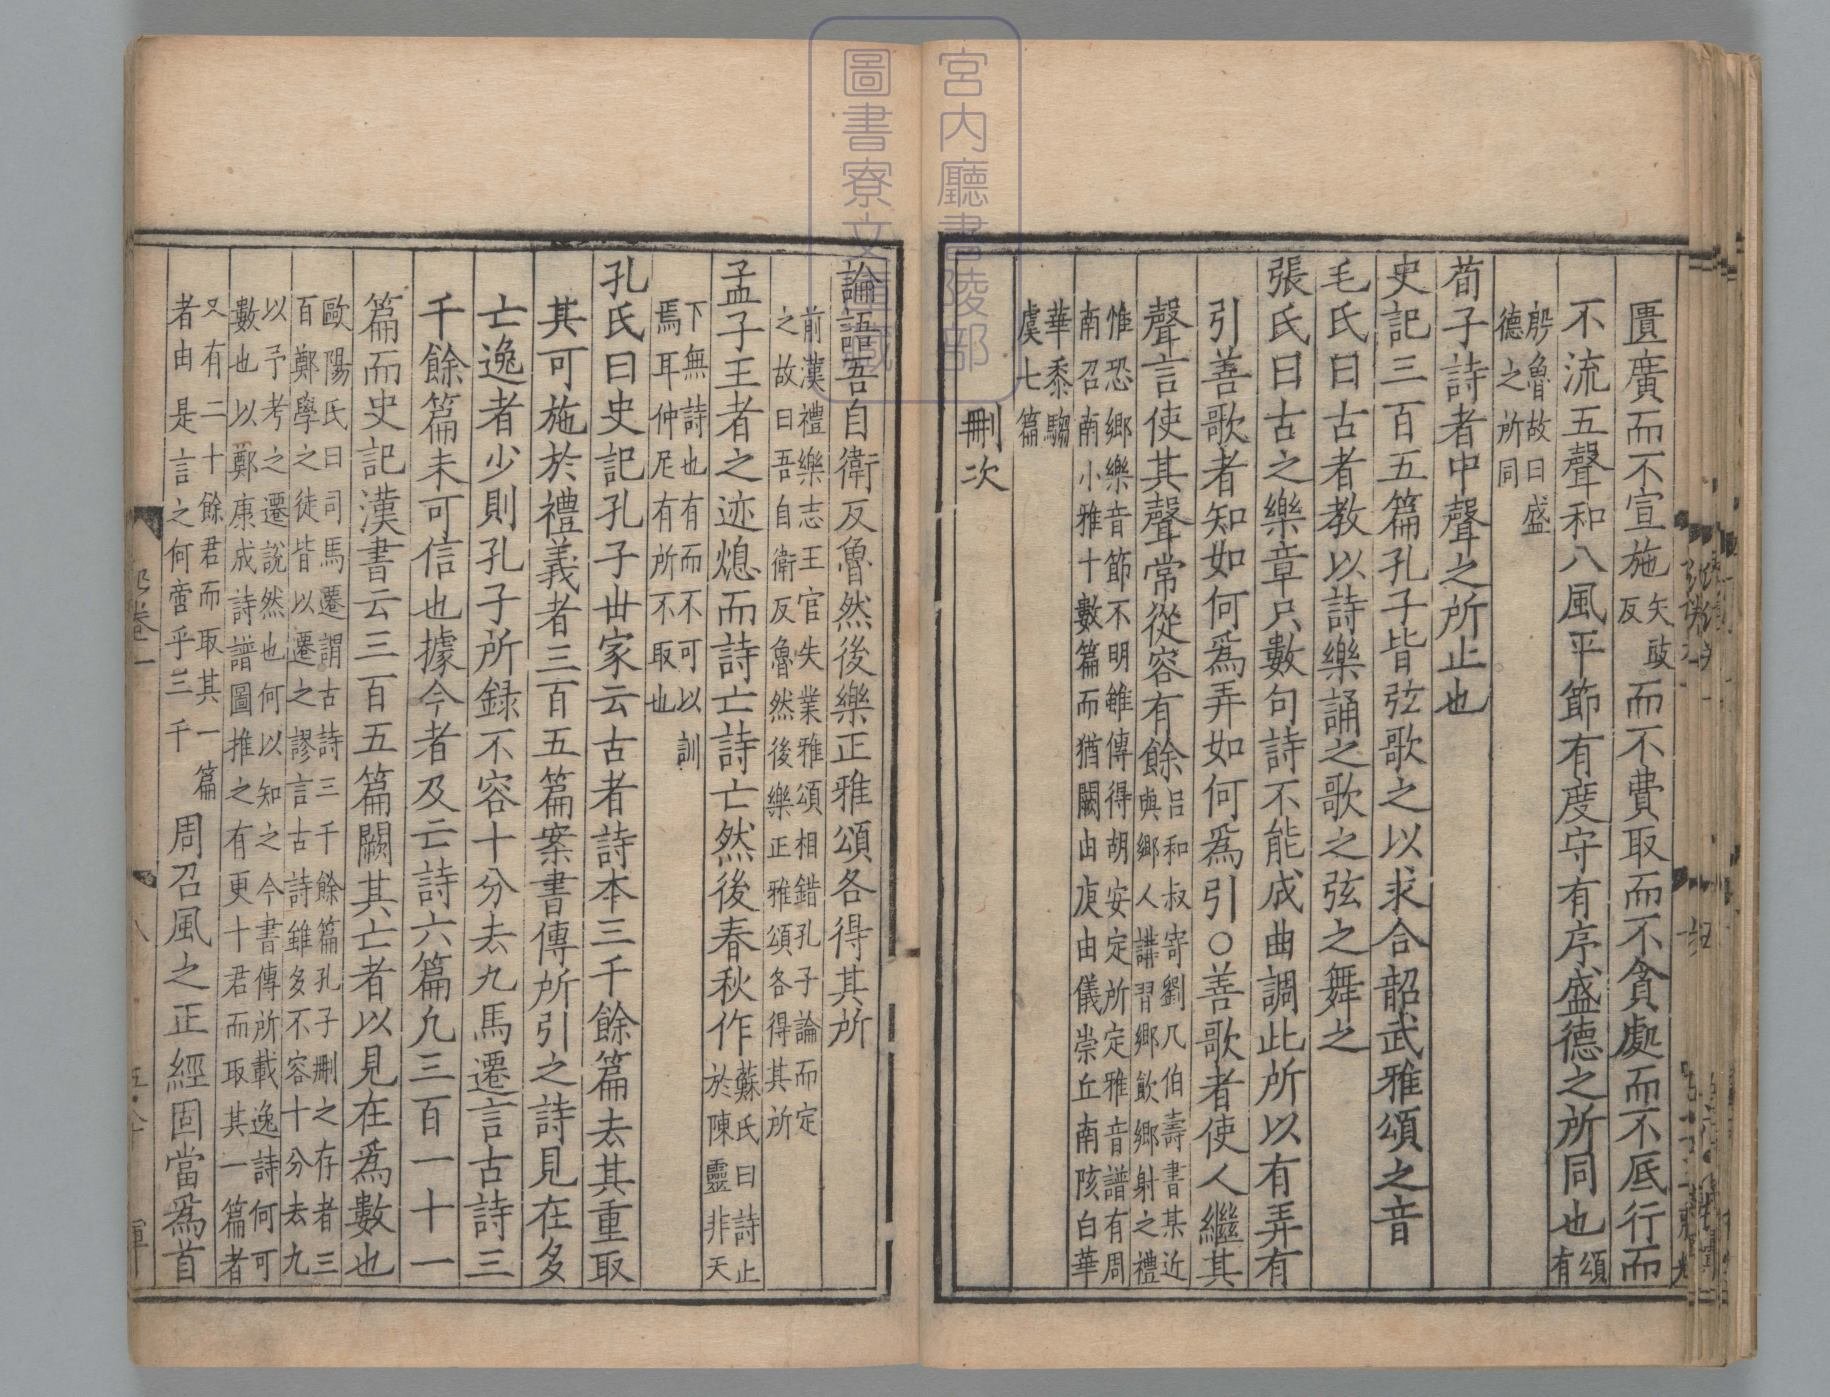 匱廣而不宣施矢豉反而不費取而不貪處而不底行而
不流五聲和八風平節有度守有序盛德之所同也頌有
殷魯故曰盛
德之所同
荀子詩者中聲之所止也
史記三百五篇孔子皆弦歌之以求合韶武雅頌之音
毛氏曰古者教以詩樂誦之歌之弦之舞之
張氏曰古之樂章只數句詩不能成曲調此所以有弄有
引善歌者知如何爲弄如何爲引○善歌者使人繼其
聲言使其聲常從容有餘呂和叔寄劉几伯壽書某近與鄉人講習鄉飲鄉射之禮
惟恐鄉樂音節不明雖傳得胡安定所定雅音譜有周
南召南小雅十數篇而猶闕由庚由儀崇丘南陔白華
華黍騶
虞七篇
刪次
論語吾自衛反魯然後樂正雅頌各得其所
前漢禮樂志王官失業雅頌相錯孔子論而定
之故曰吾自衛反魯然後樂正雅頌各得其所
孟子王者之迹熄而詩亡詩亡然後春秋作蘇氏曰詩止於陳靈非天
下無詩也有而不可以訓
焉耳仲尼有所不取也
孔氏曰史記孔子世家云古者詩本三千餘篇去其重取
其可施於禮義者三百五篇案書傳所引之詩見在多
亡逸者少則孔子所録不容十分去九馬遷言古詩三
千餘篇未可信也據今者及亡詩六篇凡三百一十一
篇而史記漢書云三百五篇闕其亡者以見在爲數也
歐陽氏曰司馬遷謂古詩三千餘篇孔子刪之存者三
百鄭學之徒皆以遷之謬言古詩雖多不容十分去九
以予考之遷說然也何以知之今書傳所載逸詩何可
數也以鄭康成詩譜圖推之有更十君而取其一篇者
又有二十餘君而取其一篇
者由是言之何啻乎三千
周召風之正經固當爲首
宮内廳書陵部
圖書寮文庫藏